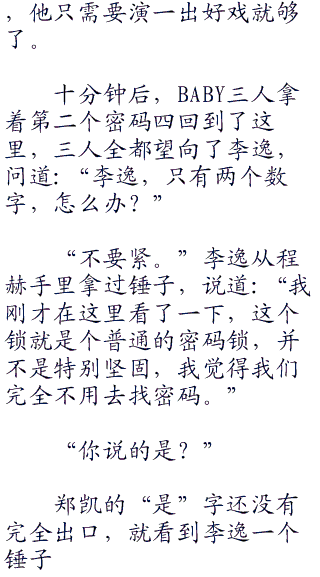 ，他只需要演一出好戏就够
了。
十分钟后，BABY三人拿
着第二个密码四回到了这
里，三人全都望向了李逸，
问道：“李逸，只有两个数
字，怎么办？”
“不要紧。”李逸从程
赫手里拿过锤子，说道：“我
刚才在这里看了一下，这个
锁就是个普通的密码锁，并
不是特别坚固，我觉得我们
完全不用去找密码。”
“你说的是？”
郑凯的“是”字还没有
完全出口，就看到李逸一个
锤子